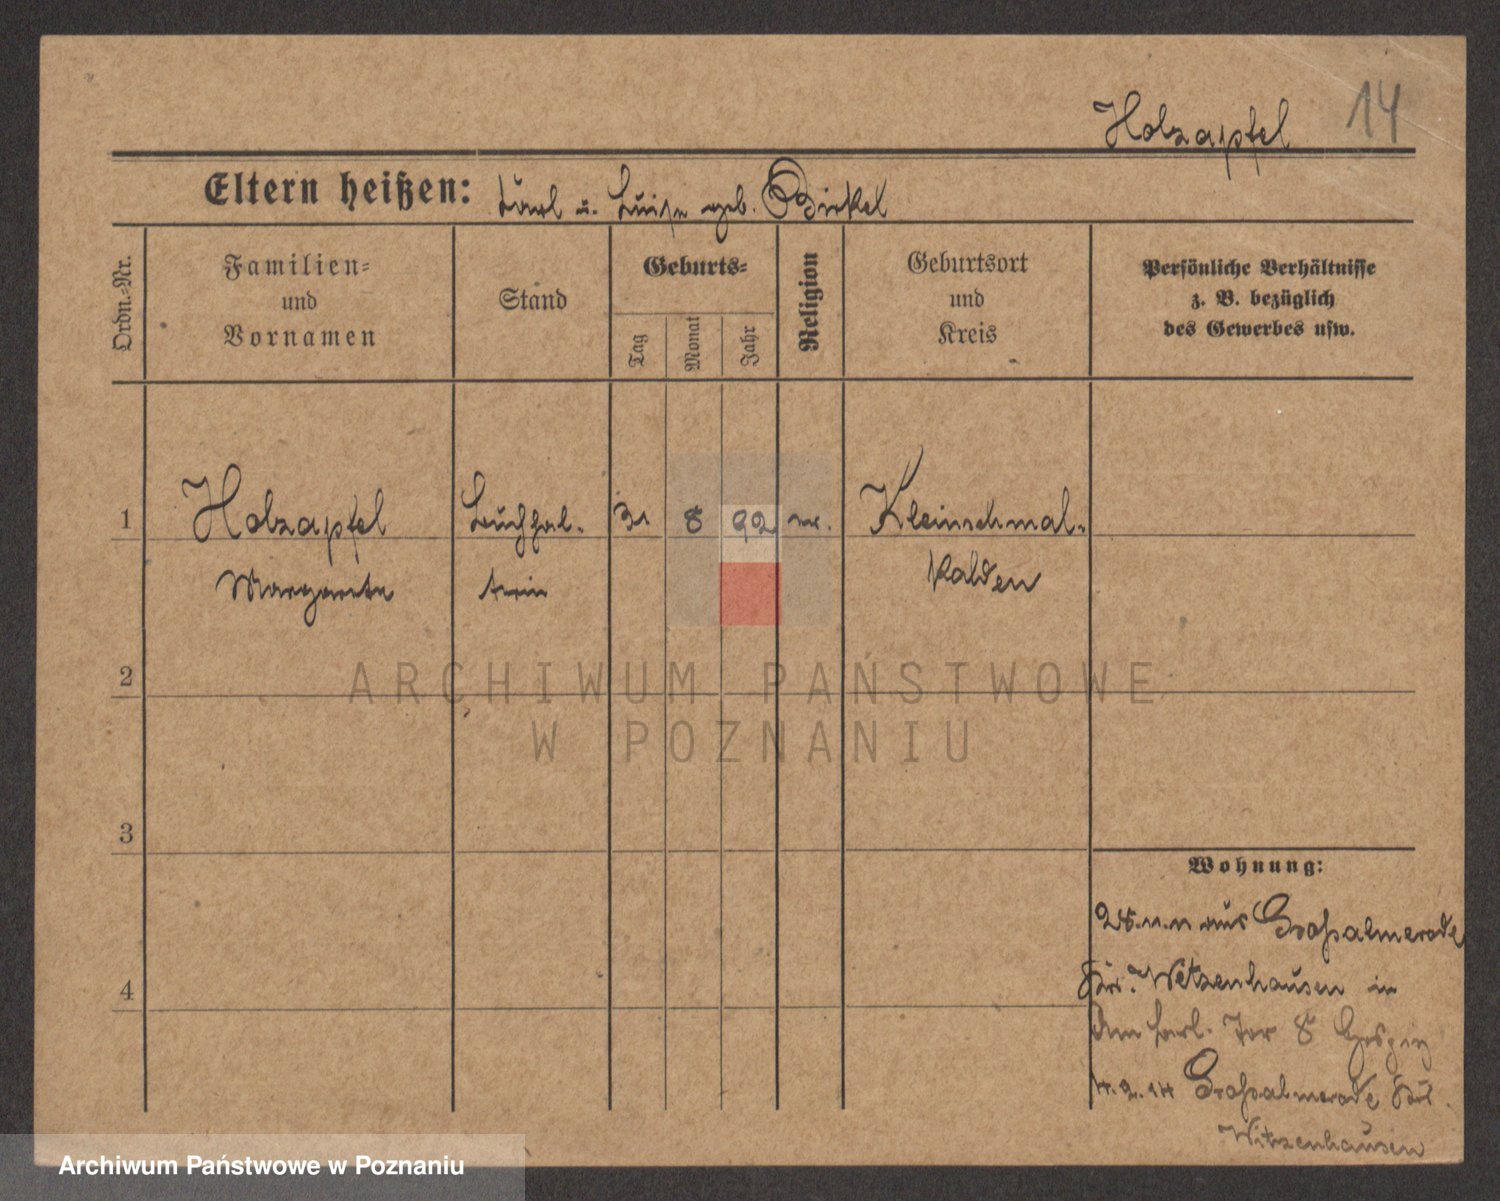 14
Holzapfel
Eltern heißen: Karl u. Luise geb. Birkel
Ordn.-Nr.
Familien-
und
Vornamen
Stand
Geburts-
Tag
Monat
Jahr
Religion
Geburtsort
und
Kreis
Persönliche Verhältnisse
z. B. bezüglich
des Gewerbes usw.
1 Holzapfel Buchhal- 31 8 92 Kleinschmal-
Margarete terin kalden
2
3
4
Wohnung:
aus Großalmerode
Witzenhausen in
Am Berl. Tor 8 Hospiz
4.2.14 Großalmerode
Witzenhausen
ARCHIWUM PAŃSTWOWE
W POZNANIU
Archiwum Państwowe w Poznaniu